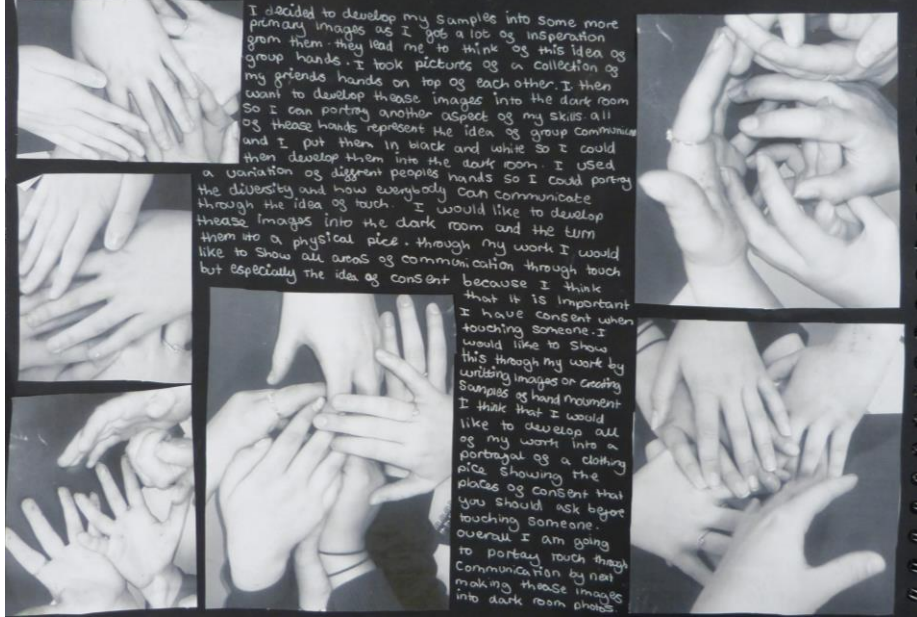 I decided to develop my samples into some more
primary images as I got a lot of insperation
from them. they lead me to think of this idea of
group hands. I took pictures of a collection of
my friends hands on top of each other. I then
want to develop thease images into the dark room
so I can portray another aspect of my skills. all
of thease hands represent the idea of group
and I put them in black and white so I could
then develop them into the dark room. I used
a variation of diffrent peoples hands so I could portray
the diversity and how everybody can communicate
through the idea of touch. I would like to develop
thease images into the dark room and the turn
them into a physical pice. through my work I would
like to show all areas of communication through touch
but especially the idea of consent because I think
that it is important
I have consent when
touching someone. I
would like to show
this through my work by
writting images or creating
samples of hand
I think that I would
like to develop all
of my work into a
portrayal of a clothing
pice showing the
places of consent that
you should ask before
touching someone.
overall I am going
to portay touch through
communication by next
making thease images
into dark room photos.